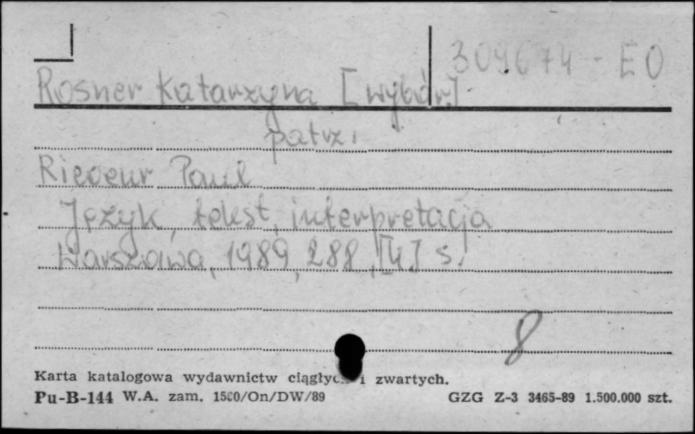 309674-EO
Rosner Katarzyna [wybór]
patrz:
Ricoeur Paul
Język, tekst, interpretacja
Warszawa, 1989, 288, [4] s.
8
Karta katalogowa wydawnictw ciągłych i zwartych.
Pu-B-144 W.A. zam. 1500/On/DW/89 GZG Z-3 3465-89 1.500.000 szt.